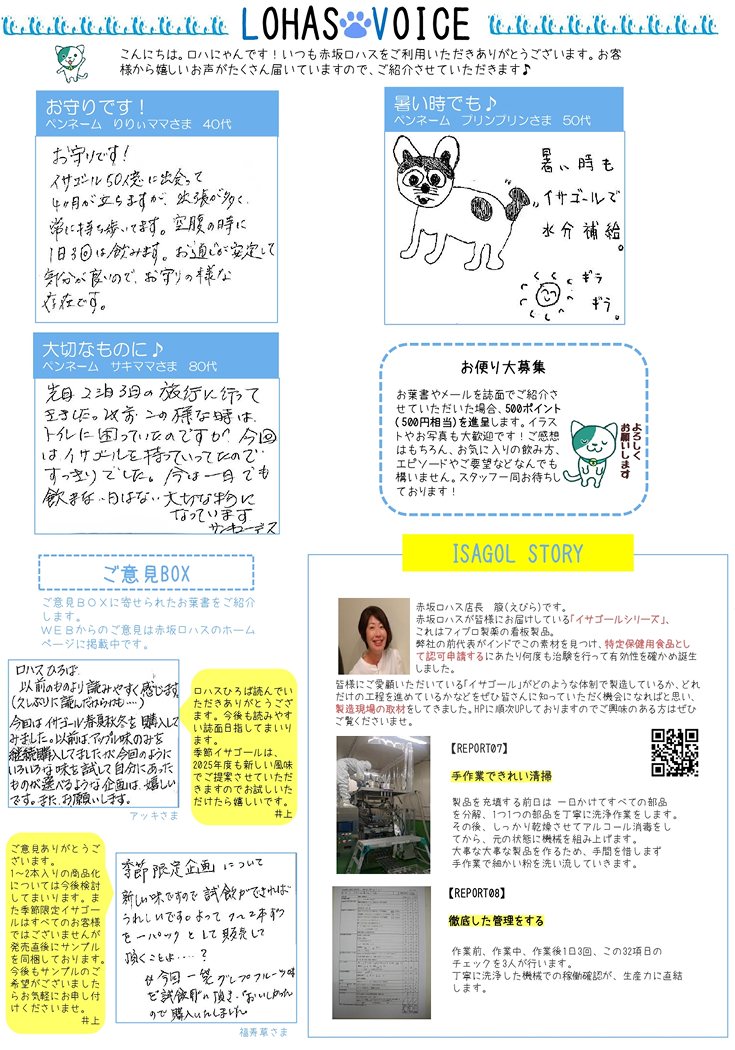 LOHAS VOICE
こんにちは。ロハにゃんです！いつも赤坂ロハスをご利用いただきありがとうございます。お客
様から嬉しいお声がたくさん届いていますので、ご紹介させていただきます♪
お守りです！
ペンネーム りりぃママさま 40代
お守りです!
イサゴール50億に出会って
4ヶ月が立ちますが、出張が多く、
常に持ち歩いてます。空腹の時に
1日3回は飲みます。お通じが安定して
気分が良いので、お守りの様な
存在です。
暑い時でも♪
ペンネーム プリンプリンさま 50代
暑い時も
イサゴールで
水分補給。
ギラ
ギラ。
大切なものに♪
ペンネーム サキママさま 80代
先日2泊3日の旅行に行って
きました。以前この様な時は、
トイレに困っていたのですが今回
はイサゴールを持っていってたので
すっきりでした。今は一日でも
飲まない日はない大切な物に
なっています
サンキューデス
お便り大募集
お葉書やメールを誌面でご紹介さ
せていただいた場合、500ポイント
(500円相当)を進呈します。イラス
トやお写真も大歓迎です！ご感想
はもちろん、お気に入りの飲み方、
エピソードやご要望などなんでも
構いません。スタッフ一同お待ちし
ております！
よろしく
お願いします
ご意見BOX
ご意見ＢＯＸに寄せられたお葉書をご紹介
します。
ＷＥＢからのご意見は赤坂ロハスのホーム
ページに掲載中です。
ロハスひろば
以前のものより読みやすく感じます。
(久しぶりに読んだからかも…)
今回はイサゴール春夏秋冬を購入して
みました。以前は、アップル味のみを
継続購入してましたが、今回のように
いろいろな味を試して自分にあった
ものが選べるような企画は、嬉しい
です。また、お願いします。
アッキさま
ロハスひろば読んでい
ただきありがとうござ
ます。今後も読みやす
い誌面目指してまいり
ます。
季節イサゴールは、
2025年度も新しい風味
でご提案させていただ
きますのでお試しいた
だけたら嬉しいです。
井上
ご意見ありがとうご
ざいます。
1～2本入りの商品化
については今後検討
してまいります。ま
た季節限定イサゴー
ルはすべてのお客様
ではございませんが
発売直後にサンプル
を同梱しております。
今後もサンプルのご
希望がございました
らお気軽にお申し付
けくださいませ。
井上
季節限定企画について
新しい味ですので試飲ができれば
うれしいです。よって1～2本づつ
を一パックとして販売して
頂くことは….？
が今回一発グレープフルーツ味
を試飲用に頂き、おいしかった
ので購入いたしました
福寿草さま
ISAGOL STORY
赤坂ロハス店長 箙(えびら)です。
赤坂ロハスが皆様にお届けしている「イサゴールシリーズ」、
これはフィブロ製薬の看板製品。
弊社の前代表がインドでこの素材を見つけ、特定保健用食品とし
て認可申請するにあたり何度も治験を行って有効性を確かめ誕生
しました。
皆様にご愛顧いただいている「イサゴール」がどのような体制で製造しているか、どれ
だけの工程を進めているかなどをぜひ皆さんに知っていただく機会になればと思い、
製造現場の取材をしてきました。HPに順次UPしておりますのでご興味のある方はぜひ
ご覧くださいませ。
【REPORT07】
手作業できれい清掃
製品を充填する前日は 一日かけてすべての部品
を分解、1つ1つの部品を丁寧に洗浄作業をします。
その後、しっかり乾燥させてアルコール消毒をし
てから、元の状態に機械を組み上げます。
大事な大事な製品を作るため、手間を惜しまず
手作業で細かい粉を洗い流していきます。
【REPORT08】
徹底した管理をする
作業前、作業中、作業後1日3回、この32項目の
チェックを3人が行います。
丁寧に洗浄した機械での稼働確認が、生産力に直結
します。